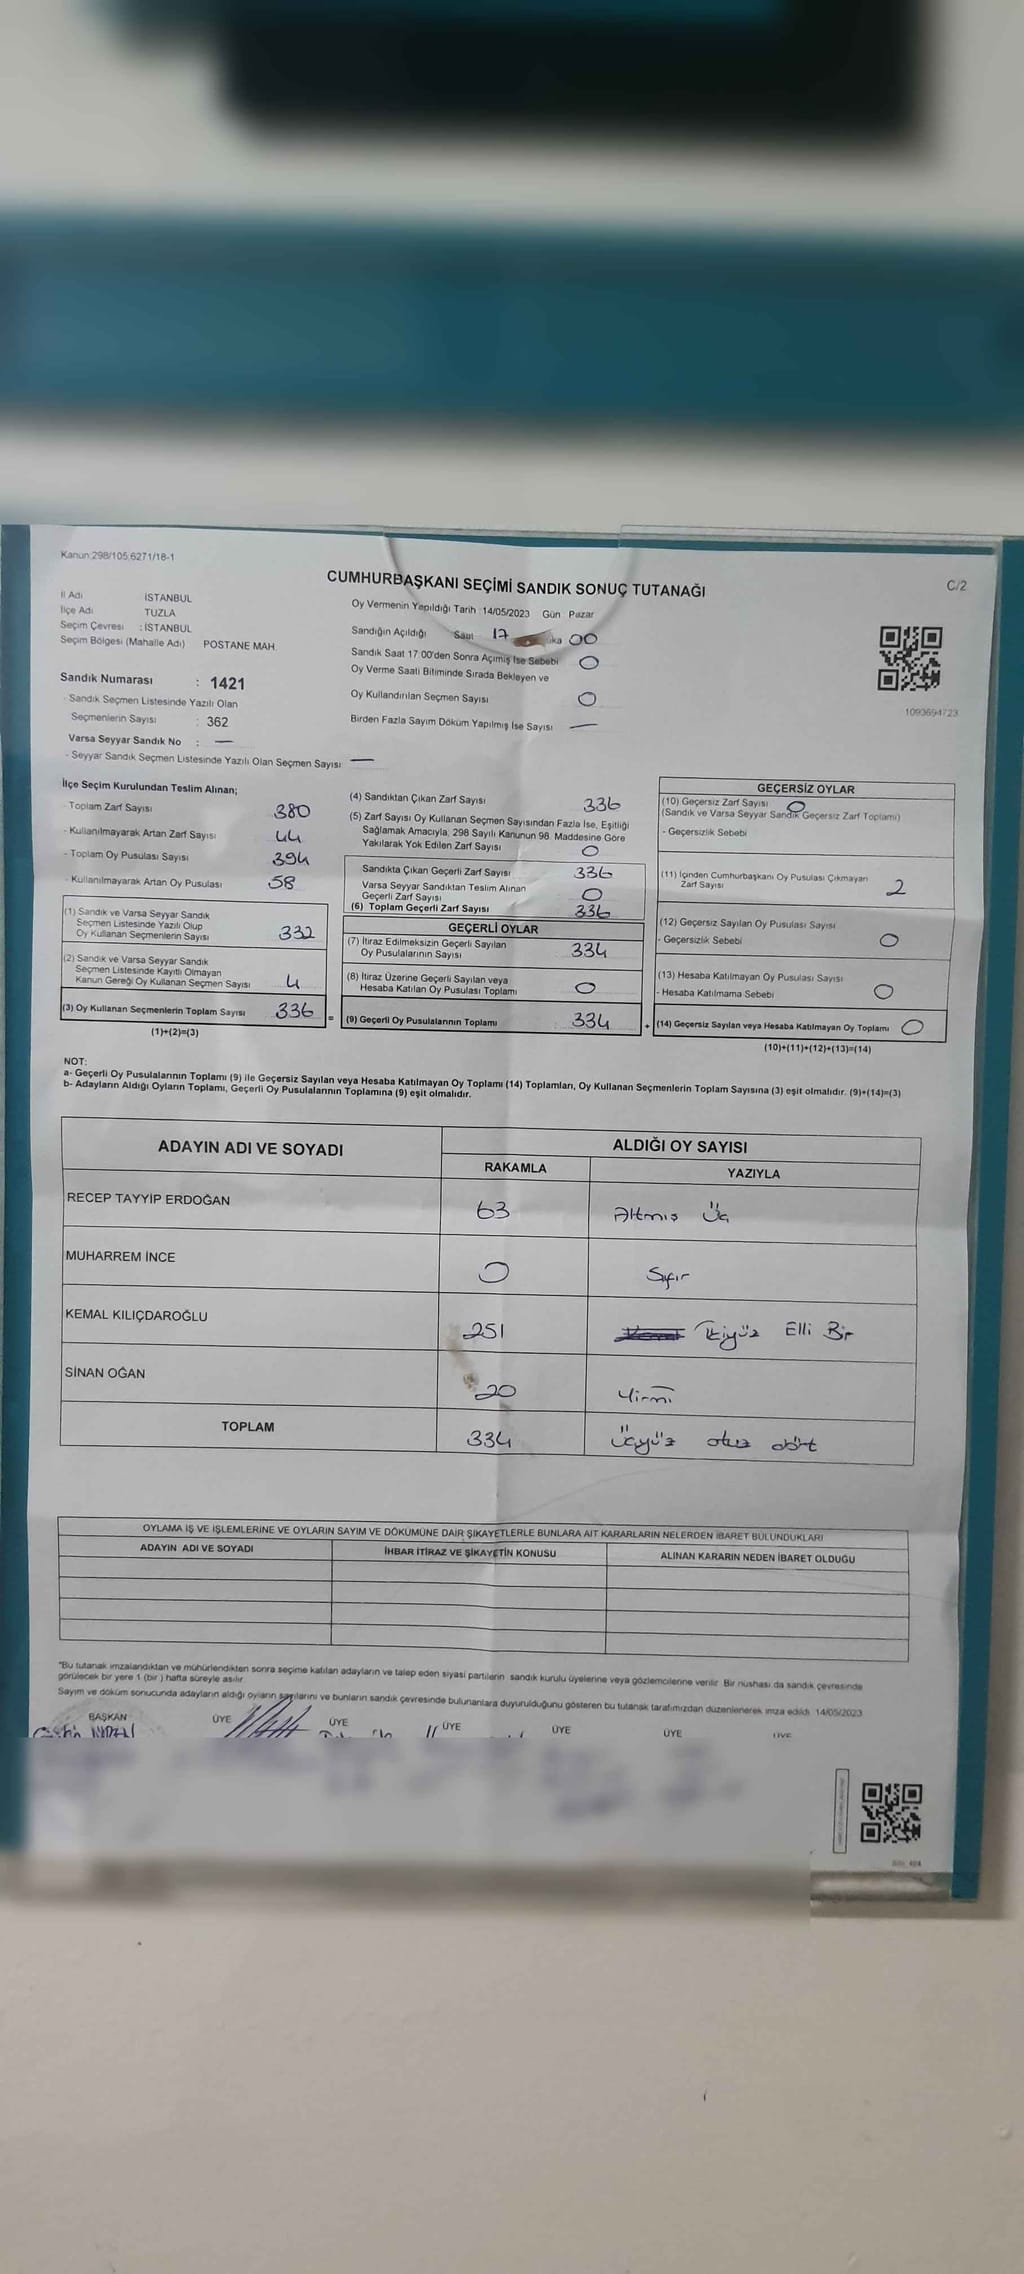 Kanun:298/105,6271/18-1
CUMHURBAŞKANI SEÇİMİ SANDIK SONUÇ TUTANAĞI
C/2
İl Adı İSTANBUL
İlçe Adı TUZLA
Seçim Çevresi : İSTANBUL
Seçim Bölgesi (Mahalle Adı) POSTANE MAH.
Sandık Numarası : 1421
- Sandık Seçmen Listesinde Yazılı Olan
Seçmenlerin Sayısı : 362
Varsa Seyyar Sandık No : —
- Seyyar Sandık Seçmen Listesinde Yazılı Olan Seçmen Sayısı: —
Oy Vermenin Yapıldığı Tarih :14/05/2023 Gün Pazar
Sandığın Açıldığı Saat 17 00
Sandık Saat 17:00'den Sonra Açımış İse Sebebi 0
Oy Verme Saati Bitiminde Sırada Bekleyen ve
Oy Kullandırılan Seçmen Sayısı 0
Birden Fazla Sayım Döküm Yapılmış İse Sayısı —
1093694723
İlçe Seçim Kurulundan Teslim Alınan;
- Toplam Zarf Sayısı 380
- Kullanılmayarak Artan Zarf Sayısı 44
- Toplam Oy Pusulası Sayısı 394
- Kullanılmayarak Artan Oy Pusulası 58
(1) Sandık ve Varsa Seyyar Sandık
Seçmen Listesinde Yazılı Olup
Oy Kullanan Seçmenlerin Sayısı 332
(2) Sandık ve Varsa Seyyar Sandık
Seçmen Listesinde Kayıtlı Olmayan
Kanun Gereği Oy Kullanan Seçmen Sayısı 4
(3) Oy Kullanan Seçmenlerin Toplam Sayısı 336
(1)+(2)=(3)
(4) Sandıktan Çıkan Zarf Sayısı 336
(5) Zarf Sayısı Oy Kullanan Seçmen Sayısından Fazla İse, Eşitliği
Sağlamak Amacıyla, 298 Sayılı Kanunun 98. Maddesine Göre
Yakılarak Yok Edilen Zarf Sayısı 0
Sandıkta Çıkan Geçerli Zarf Sayısı 336
Varsa Seyyar Sandıktan Teslim Alınan
Geçerli Zarf Sayısı 0
(6) Toplam Geçerli Zarf Sayısı 336
GEÇERLİ OYLAR
(7) İtiraz Edilmeksizin Geçerli Sayılan
Oy Pusulalarının Sayısı 334
(8) İtiraz Üzerine Geçerli Sayılan veya
Hesaba Katılan Oy Pusulası Toplamı 0
= (9) Geçerli Oy Pusulalarının Toplamı 334
GEÇERSİZ OYLAR
(10) Geçersiz Zarf Sayısı 0
(Sandık ve Varsa Seyyar Sandık Geçersiz Zarf Toplamı)
- Geçersizlik Sebebi
(11) İçinden Cumhurbaşkanı Oy Pusulası Çıkmayan
Zarf Sayısı 2
(12) Geçersiz Sayılan Oy Pusulası Sayısı
- Geçersizlik Sebebi 0
(13) Hesaba Katılmayan Oy Pusulası Sayısı
- Hesaba Katılmama Sebebi 0
+ (14) Geçersiz Sayılan veya Hesaba Katılmayan Oy Toplamı 0
(10)+(11)+(12)+(13)=(14)
NOT:
a- Geçerli Oy Pusulalarının Toplamı (9) ile Geçersiz Sayılan veya Hesaba Katılmayan Oy Toplamı (14) Toplamları, Oy Kullanan Seçmenlerin Toplam Sayısına (3) eşit olmalıdır. (9)+(14)=(3)
b- Adayların Aldığı Oyların Toplamı, Geçerli Oy Pusulalarının Toplamına (9) eşit olmalıdır.
ADAYIN ADI VE SOYADI ALDIĞI OY SAYISI
RAKAMLA YAZIYLA
RECEP TAYYİP ERDOĞAN 63 Altmış Üç
MUHARREM İNCE 0 Sıfır
KEMAL KILIÇDAROĞLU 251 İkiyüz Elli Bir
SİNAN OĞAN 20 Yirmi
TOPLAM 334 Üçyüz otuz dört
OYLAMA İŞ VE İŞLEMLERİNE VE OYLARIN SAYIM VE DÖKÜMÜNE DAİR ŞİKAYETLERLE BUNLARA AİT KARARLARIN NELERDEN İBARET BULUNDUKLARI
ADAYIN ADI VE SOYADI İHBAR İTİRAZ VE ŞİKAYETİN KONUSU ALINAN KARARIN NEDEN İBARET OLDUĞU
"Bu tutanak imzalandıktan ve mühürlendikten sonra seçime katılan adayların ve talep eden siyasi partilerin sandık kurulu üyelerine veya gözlemcilerine verilir. Bir nüshası da sandık çevresinde
görülecek bir yere 1 (bir ) hafta süreyle asılır.
Sayım ve döküm sonucunda adayların aldığı oyların sayılarını ve bunların sandık çevresinde bulunanlara duyurulduğunu gösteren bu tutanak tarafımızdan düzenlenerek imza edildi. 14/05/2023
BAŞKAN ÜYE ÜYE ÜYE ÜYE ÜYE ÜYE